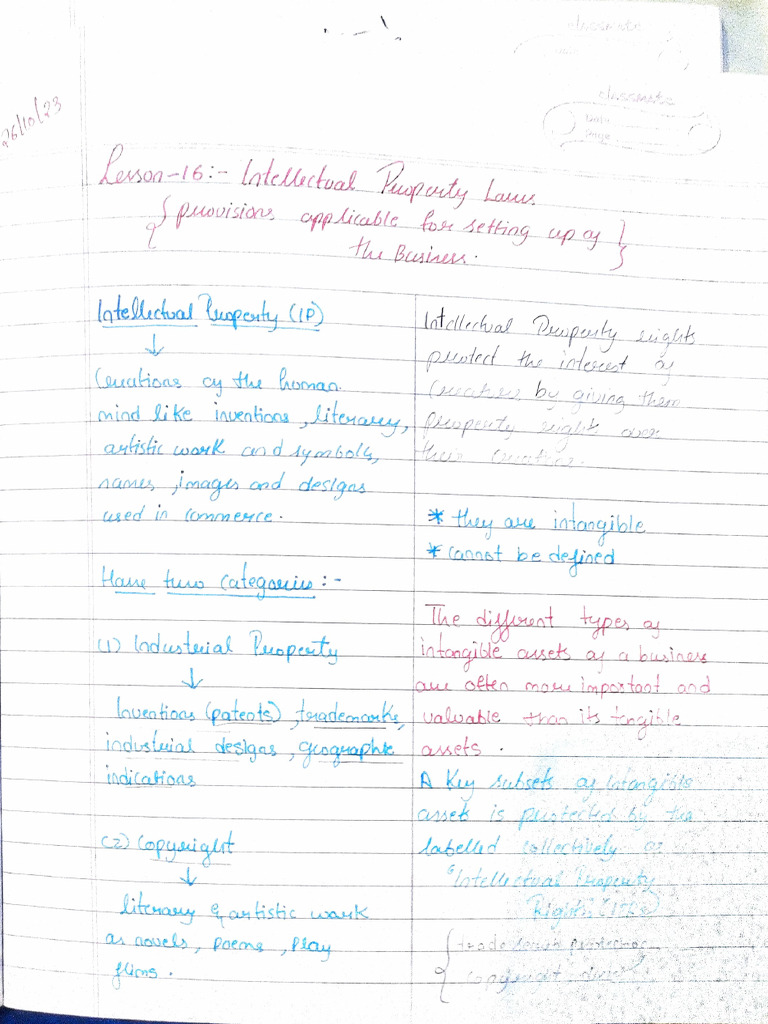 classmate
classmate
Date
Page
26/10/23
Lesson-16:- Intellectual Property Laws
{ provisions applicable for setting up of }
the Business.
Intellectual Property (IP)
↓
Creations of the human
mind like inventions, literary,
artistic work and symbols,
names, images and designs
used in commerce.
Have two categories:-
(1) Industrial Property
↓
Inventions (patents), trademarks,
industrial designs, geographic
indications
(2) Copyright
↓
literary & artistic work
as novels, poems, play
films.
Intellectual Property rights
protect the interest of
creators by giving them
property rights over
their creation.
* they are intangible
* cannot be defined
The different types of
intangible assets of a business
are often more important and
valuable than its tangible
assets.
A Key subsets of intangible
assets is protected by the
labelled collectively as
"Intellectual Property
Rights
{ trade protection
copyright